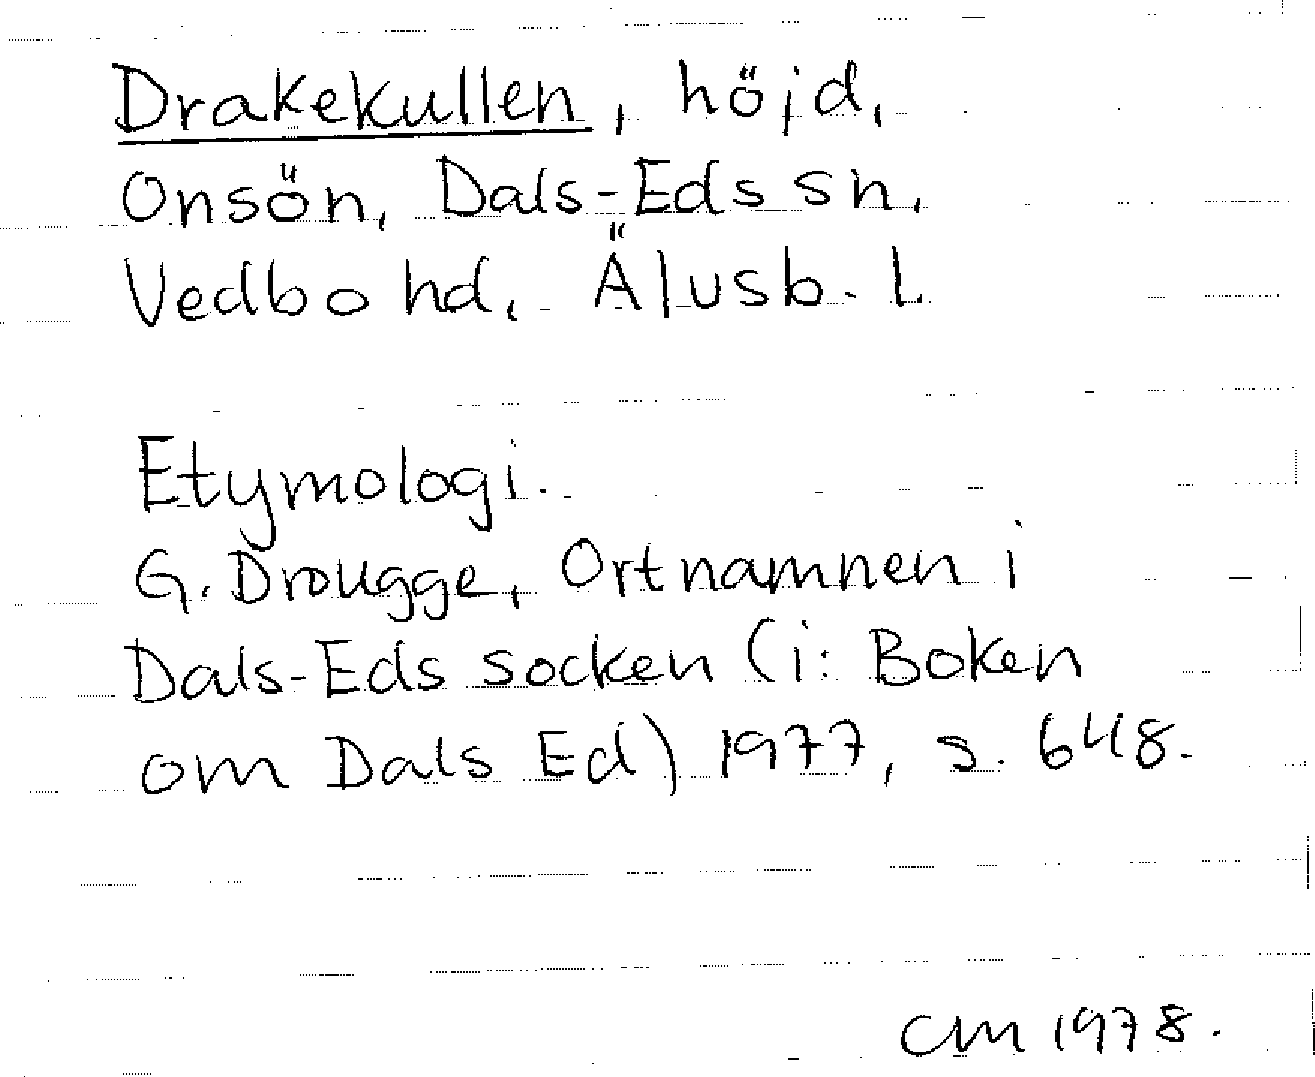 Drakekullen, höjd,
Onsön, Dals-Eds sn,
Vedbo hd, Älvsb. l.
Etymologi.
G. Drougge, Ortnamnen i
Dals-Eds socken (i: Boken
om Dals Ed) 1977, s. 648.
CM 1978.